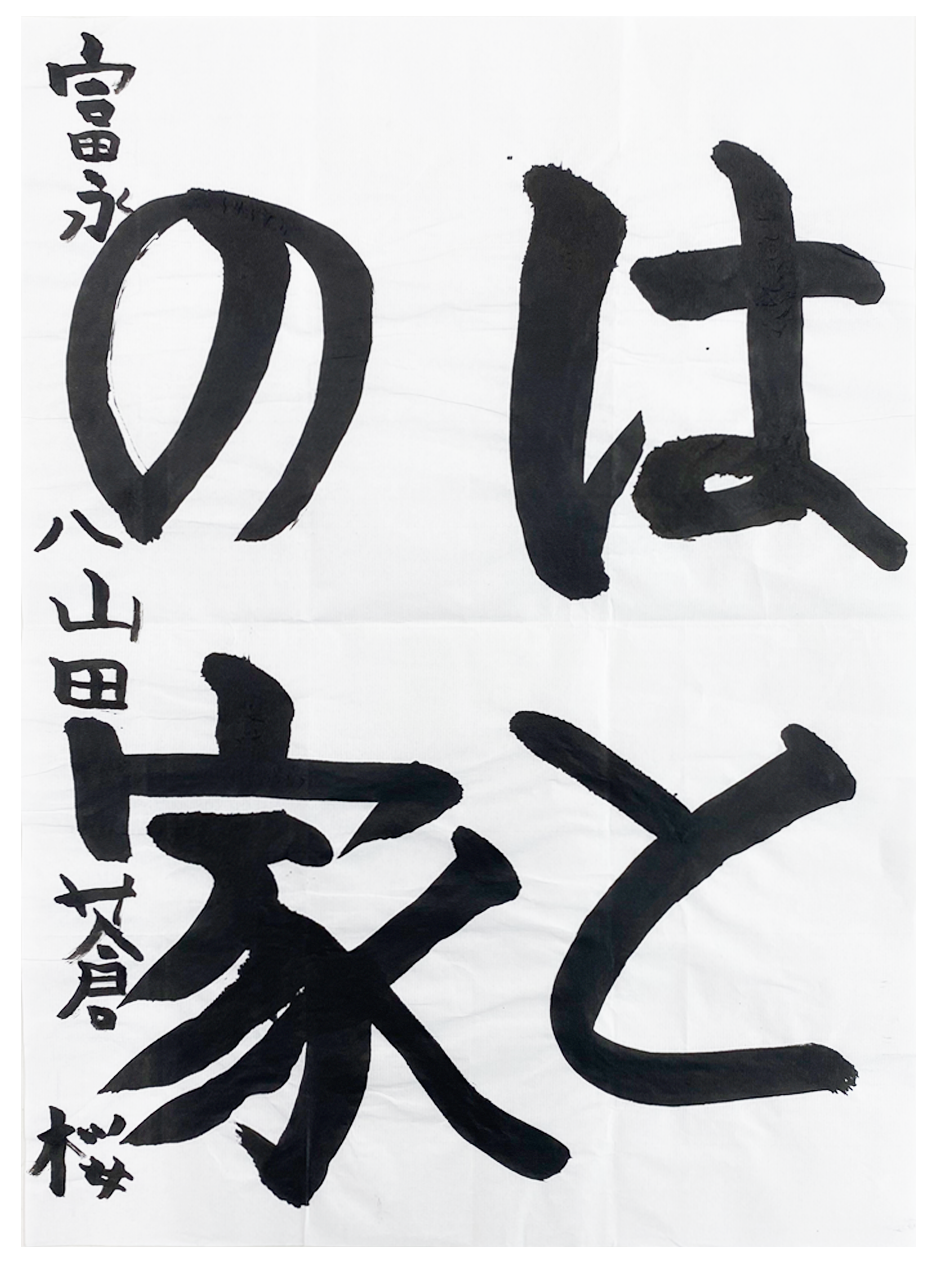 はと
の家
富永 八山田 蒼 桜